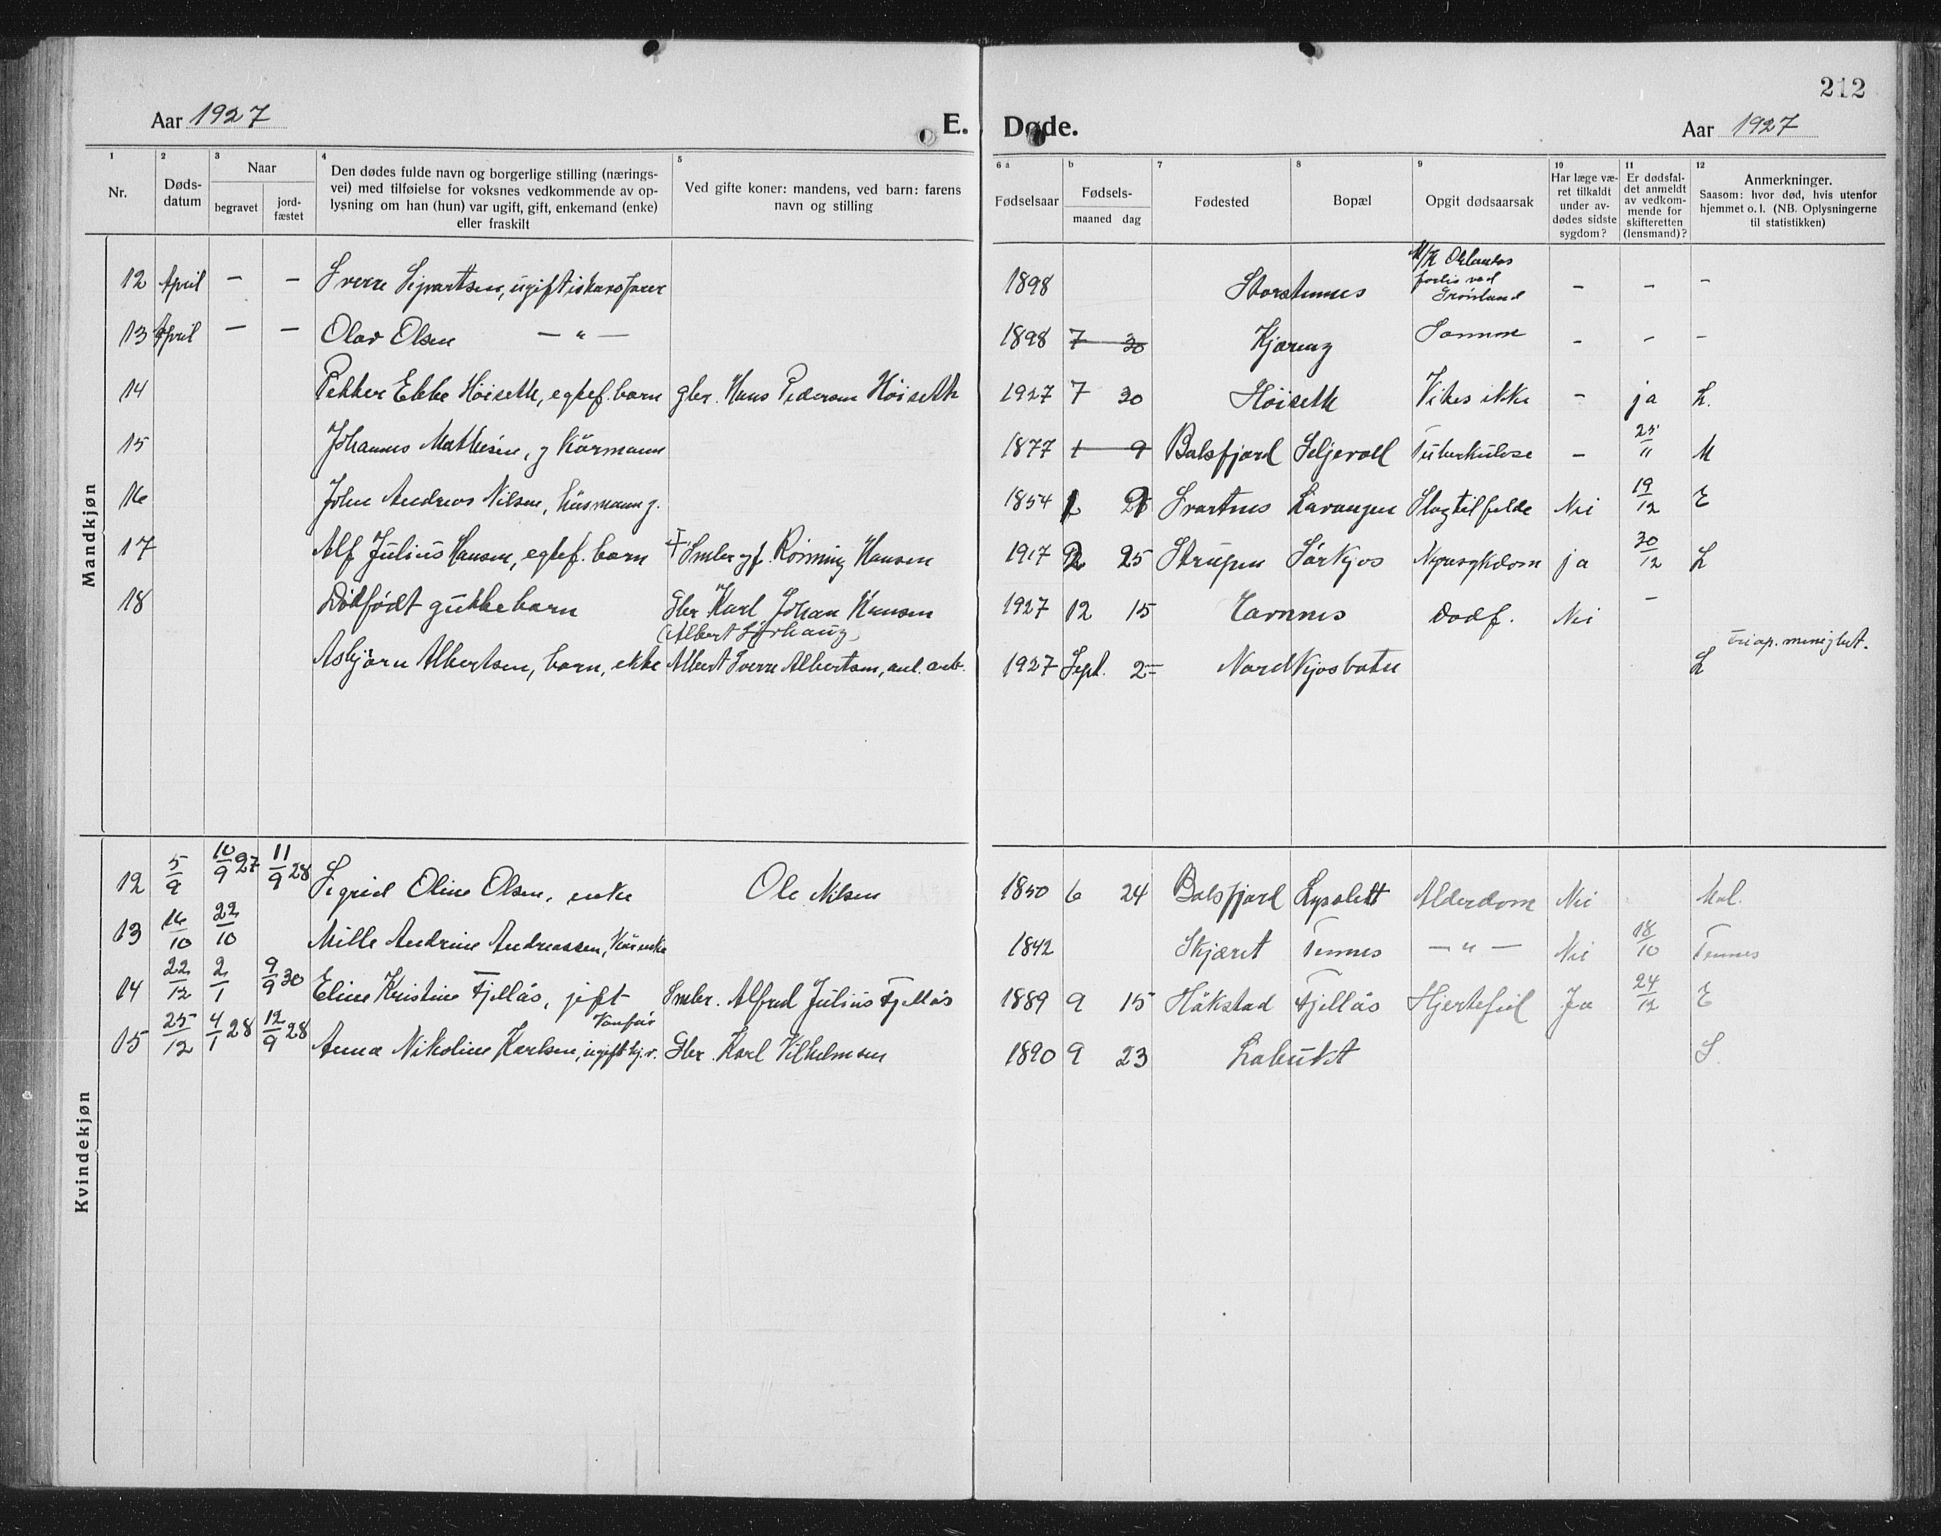 212
Aar 1927
E. Døde.
Aar 1927
1 2 3 4 5 6 a b 7 8 9 10 11 12
Nr.
Døds-
datum
Naar
begravet
jord-
fæstet
Den dødes fulde navn og borgerlige stilling (nærings-
vei) med tilføielse for voksnes vedkommende av op-
lysning om han (hun) var ugift, gift, enkemand (enke)
eller fraskilt
Ved gifte koner: mandens, ved barn: farens
navn og stilling
Fødselsaar
Fødsels-
maaned dag
Fødested
Bopæl
Opgit dødsaarsak
Har læge væ-
ret tilkaldt
under av-
dødes sidste
sygdom?
Er dødsfal-
det anmeldt
av vedkom-
mende for
skifteretten
(lensmand)?
Anmerkninger.
Saasom: hvor død, hvis utenfor
hjemmet o. l. (NB. Oplysningerne
til statistikken)
Mandkjøn
12 April – – Sverre Sivertsen, ugift ishavsfarer 1898 Storstennes M/K forlis ved Grønland – – –
13 April – – Olav Olsen – " – 1898 7 30 Kjæreng Samme – – –
14 Petter Ebbe Høiseth, egtef. barn gbr. Hans Pedersen Høiseth 1927 7 30 Høiseth Vites ikke – ja L.
15 Johannes Mathisen, g Kårmann 1877 1 9 Balsfjord Seljevoll Tuberkulose – 25/11 M
16 John Andreas Nilsen, husmann g. 1854 Svartnes Lavangen Slagtilfelde Nei 19/12 E
17 Alf Julius Hansen, egtef. barn Rønning Hansen 1917 2 25 Strupen Sørkjos Nyresykdom ja 30/12 L
18 Dødfødt guttebarn Gbr Karl Johan Hansen 1927 12 15 Tamnes Dødf. Nei –
(Albert Sørhaug)
Asbjørn Albertsen, barn, ekte Albert Sverre Albertsen, anl. arb. 1927 Sept. 2 Nordkjosbotn L Fri ap. menighet.
Kvindekjøn
12 5/9 10/9 27 11/9 28 Sigrid Oline Olsen, enke Ole Nilsen 1850 6 24 Balsfjord Lysslett Alderdom Nei Mal.
13 16/10 22/10 Mille Andrine Andreassen, Kårenke 1842 Skjæret Tennes – " – Nei 18/10 Tennes
14 22/12 2/1 9/9 30 Eline Kristine Fjellås, gift Smbr. Alfred Julius Fjellås 1889 9 15 Håkstad Fjellås Hjertefeil Ja 24/12 E
15 25/12 4/1 28 12/9 28 Anna Nikoline Karlsen, ugift hj.v. Gbr. Karl Vilhelmsen 1890 9 23 Labukt S.